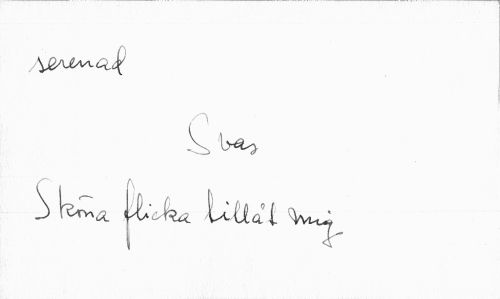 serenad
Svas
Sköna flicka tillåt mig